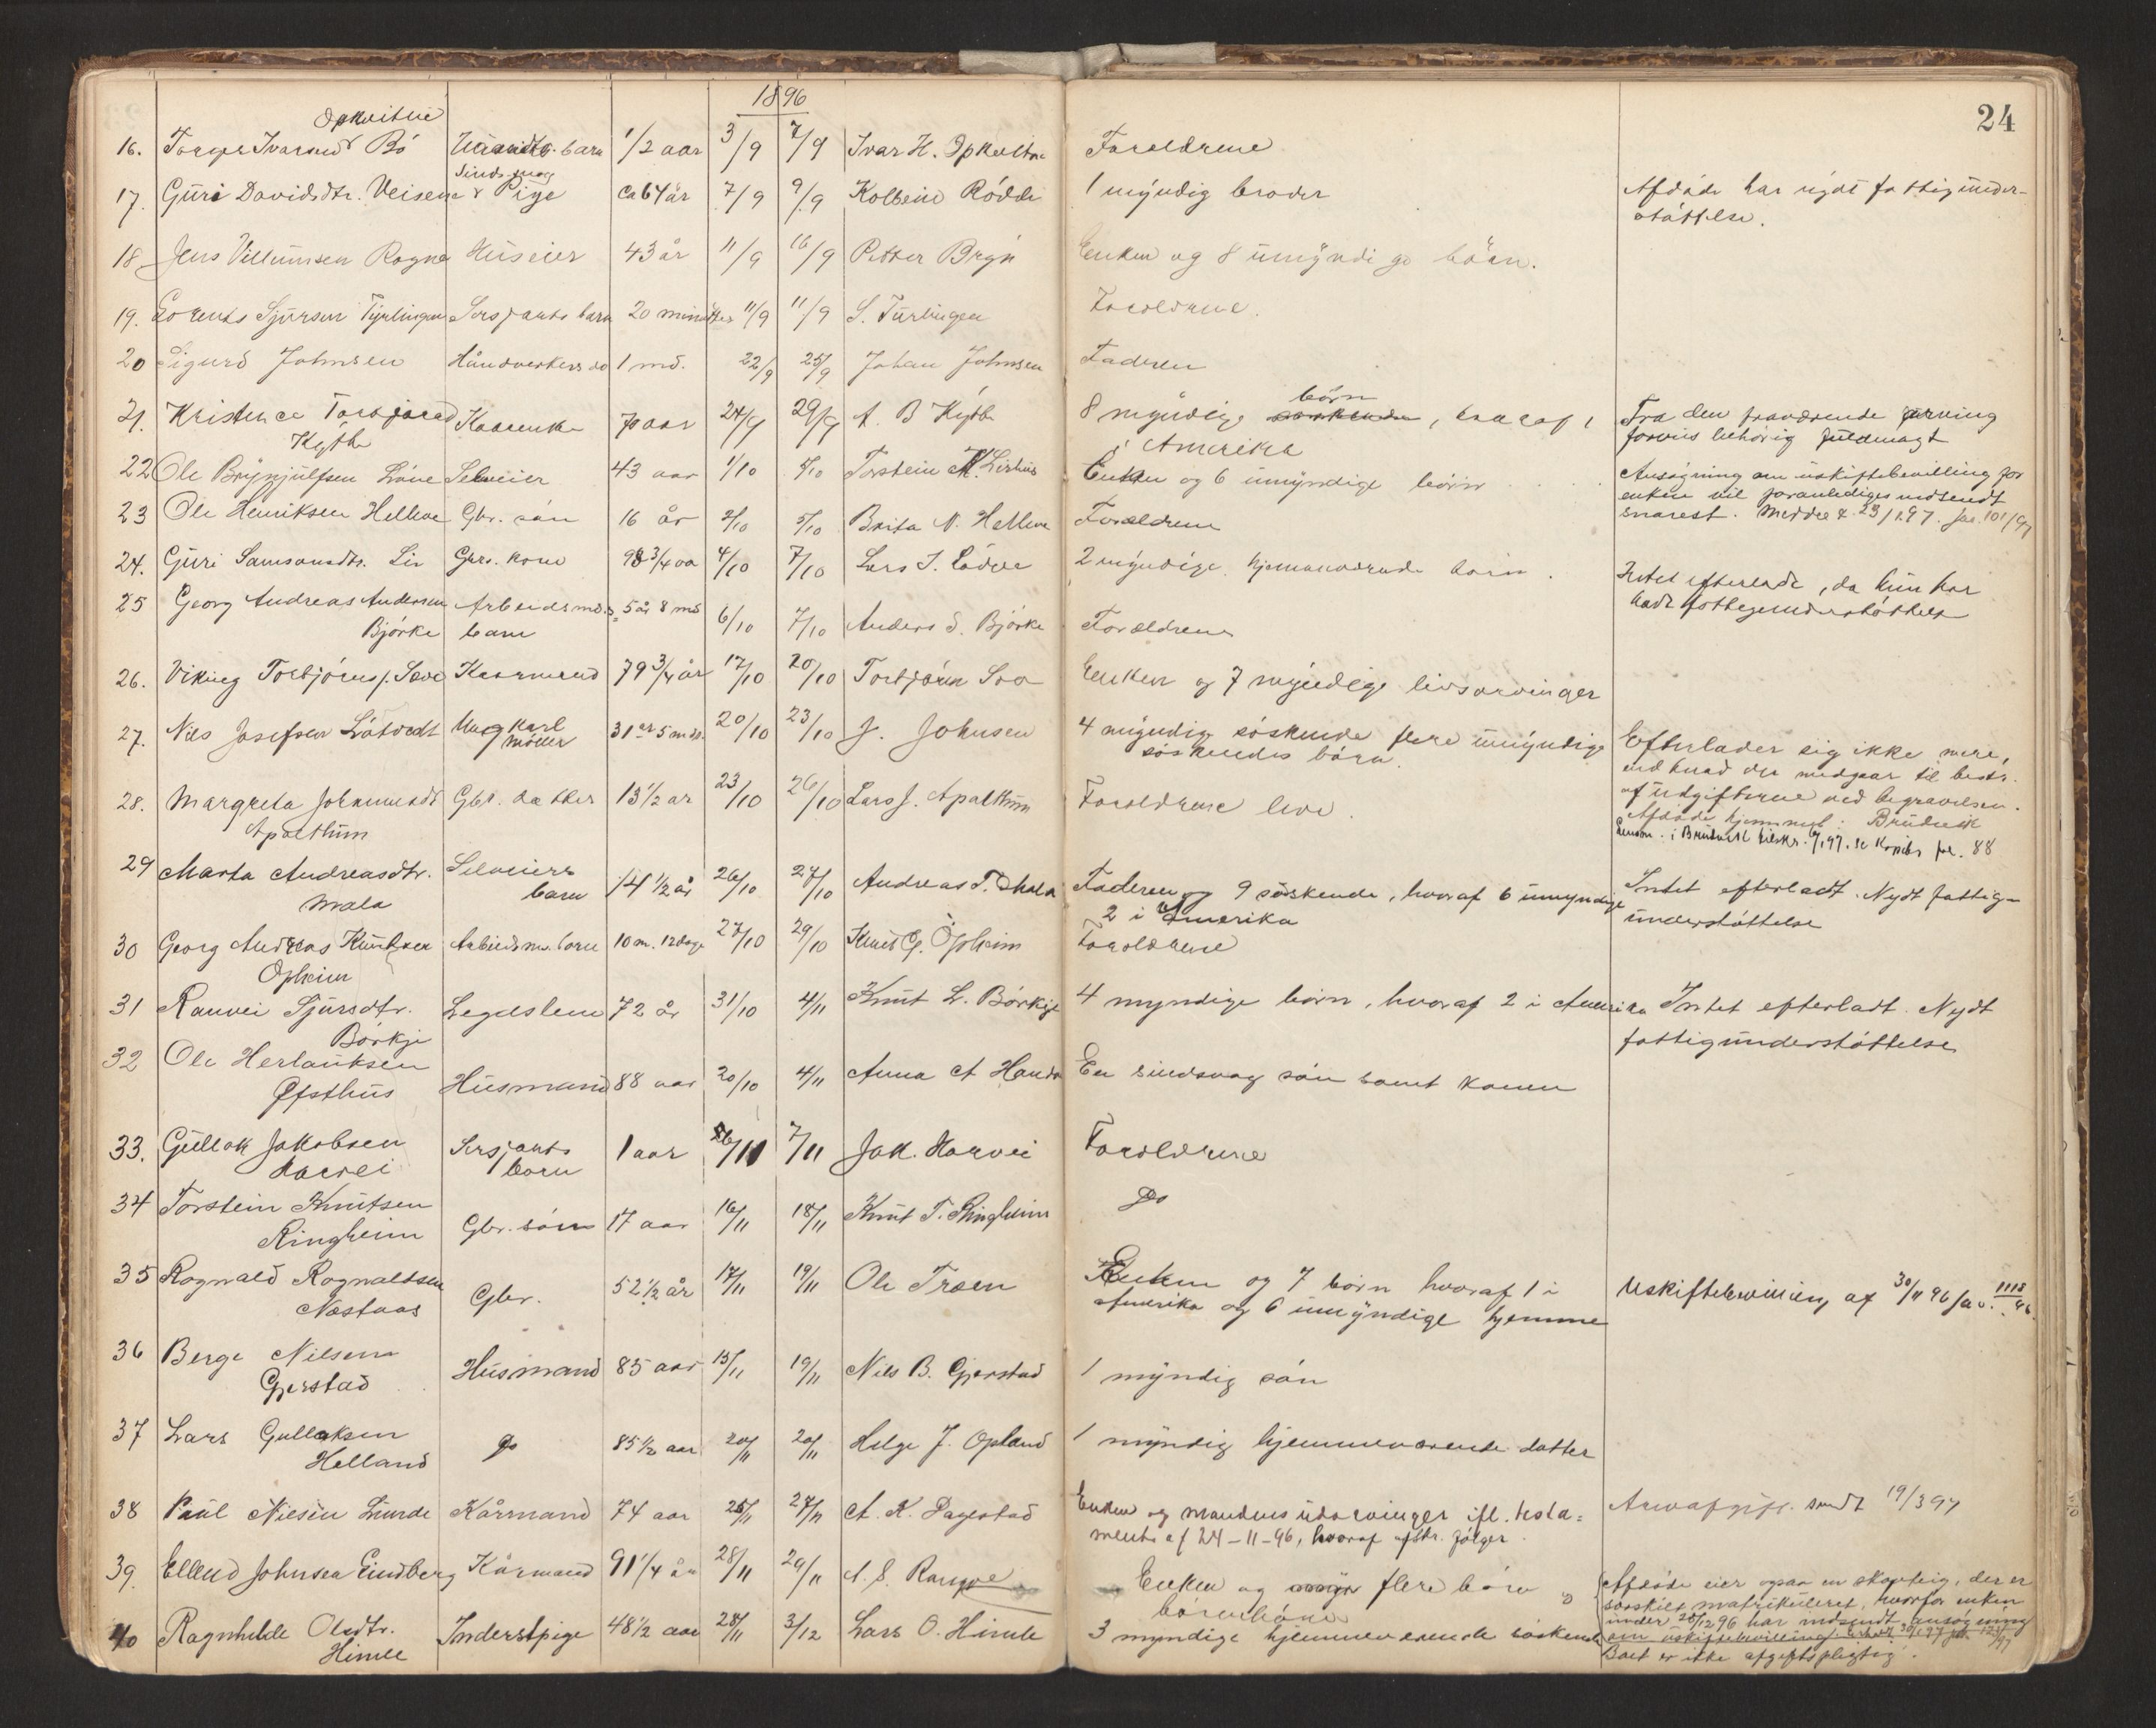 1896
24
Opkvitne
16. Torge Ivarsed Bö barn 1/2 aar 3/9 7/9 Ivar H. Opkvitne Forældrene
Sindssvag
17. Guri Davidsdtr. Veisene Pige ca 64 år 7/9 9/9 Kolbein Rödde 1 myndig broder Afdöde har nydt fattigunder-
støttelse.
18 Jens Villumsen Rogne Huseier 43 år 11/9 16/9 Petter Bryn Enken og 8 umyndige börn.
19. Lorents Sjursen Tyrlingen Sersjants barn 20 minutter 11/9 11/9 S. Türlingen Forældrene.
20 Sigurd Johnsen Håndverkers do 1 md. 22/9 25/9 Johan Johnsen Faderen
börn
21. Kristence Torbjörnsd Kaarenke 70 aar 24/9 29/9 A. B Kyte 8 myndige, hvoraf 1 Fra den fraværende arving
Kyte i Amerika forevis behörig fuldmagt
22 Ole Brynjulfsen Löne Selveier 43 aar 1/10 5/10 Torstein Lirhus Enken og 6 umyndige börn Ansögning om uskiftebevilling for
enken vil foranlediges indsendt
23 Ole Henriksen Helleve Gbr. sön 16 år 2/10 5/10 Brita N. Helleve Forældrene snarest. Meddelt 23/1 97. Jnr. 101/97
24. Guri Samsonsdtr. Lie Gbrs. kone 98 3/4 aa 4/10 7/10 Lars S. Lödve 2 myndige hjemmeværende börn. Intet efterladt, da hun har
havt fattigunderstöttelse
25 Georg Andreas Andersen Arbeidsmds 5 år 8 md 6/10 7/10 Anders S. Björke Forældrene
Björke barn
26. Viking Torbjörns. Saue Kaarmand 79 3/4 år 17/10 20/10 Torbjörn Sau Enken og 7 myndige livsarvinger
27. Nils Josefsen Låtvedt Ungkarl 31 år 5 mdr. 20/10 23/10 J. Johnsen 4 myndige söskende flere umyndige Efterlader sig ikke mere,
möller söskendes börn. end hvad der medgaar til bestr.
af udgifterne ved begravelsen.
28. Margreta Johannesdt Gbr. datter 13 1/2 ar 23/10 26/10 Lars J. Apalthun Forældrene leve.
Apalthun Afdöde hjemmeh: Brudvik
i Brudvik tilskr. 9/1 97. se Kopibs fol. 88
29 Marta Andreasdtr. Selveiers 14 1/2 år 26/10 27/10 Andreas T. Mala Faderen og 9 söskende, hvoraf 6 umyndige Intet efterladt. Nydt fattig-
Mala barn 2 i Amerika understöttelse
30 Georg Andreas Knutsen Arbeidsm. barn 10 m. 12 dage 27/10 29/10 Knut G. Opheim Forældrene
Opheim
31 Ranvei Sjursdtr. Legdslem 72 år 31/10 4/11 Knut L. Börkje 4 myndige börn, hvoraf 2 i Amerika Intet efterladt. Nydt
Börkje fattigunderstöttelse
32 Ole Herlauksen Husmand 88 aar 20/10 4/11 Anna A Hands En sindssvag sön samt konen
Ofsthus
33. Gullak Jakobsen Sersjants 1 aar 6/11 7/11 Jak. Horvei Forældrene
Horvei barn
34 Torstein Knutsen Gbr. sön 17 aar 16/11 18/11 Knut T. Ringheim Do
Ringheim
35 Rognald Rognaldsen Gbr. 52 1/2 år 17/11 19/11 Ole Troen Enken og 7 börn hvoraf 1 i Uskiftebevilling af 30/11 96 Jnr. 1118/96
Næstaas Amerika og 6 umyndige hjemme
36 Berge Nilsen Husmand 85 aar 15/11 19/11 Nils B. Gjerstad 1 myndig sön
Gjerstad
37 Lars Gullaksen do 85 1/2 aar 20/11 20/11 Helge J. Opland 1 myndig hjemmeværende datter
Helland
38 Paul Nielsen Lunde Kårmand 74 aar 25/11 27/11 A. K. Dagestad Enken og mandens udarvinger ifl. testa= Arveafgift. sendt 19/3 97
mente af 24-11-96, hvoraf afskr. fölger.
39. Ellend Johnsen Lindberg Kårmand 91 1/4 år 28/11 29/11 A. S. Rongve Enken og flere börn og Afdöde eier ogsaa en skogteig, der er
börnebörn særskilt matrikuleret, hvorfor enken
under 28/12 96 har indsendt ansögning
40 Ragnhilde Olsdtr. Inderstpige 48 1/2 aar 28/11 3/12 Lars O. Himle 3 myndige hjemmeværende söskende om uskiftebevilling.
Himle Boet er ikke afgiftspligtig.